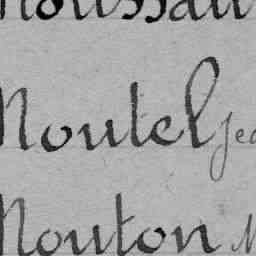 Moussau
Moutel Jea
Mouton M